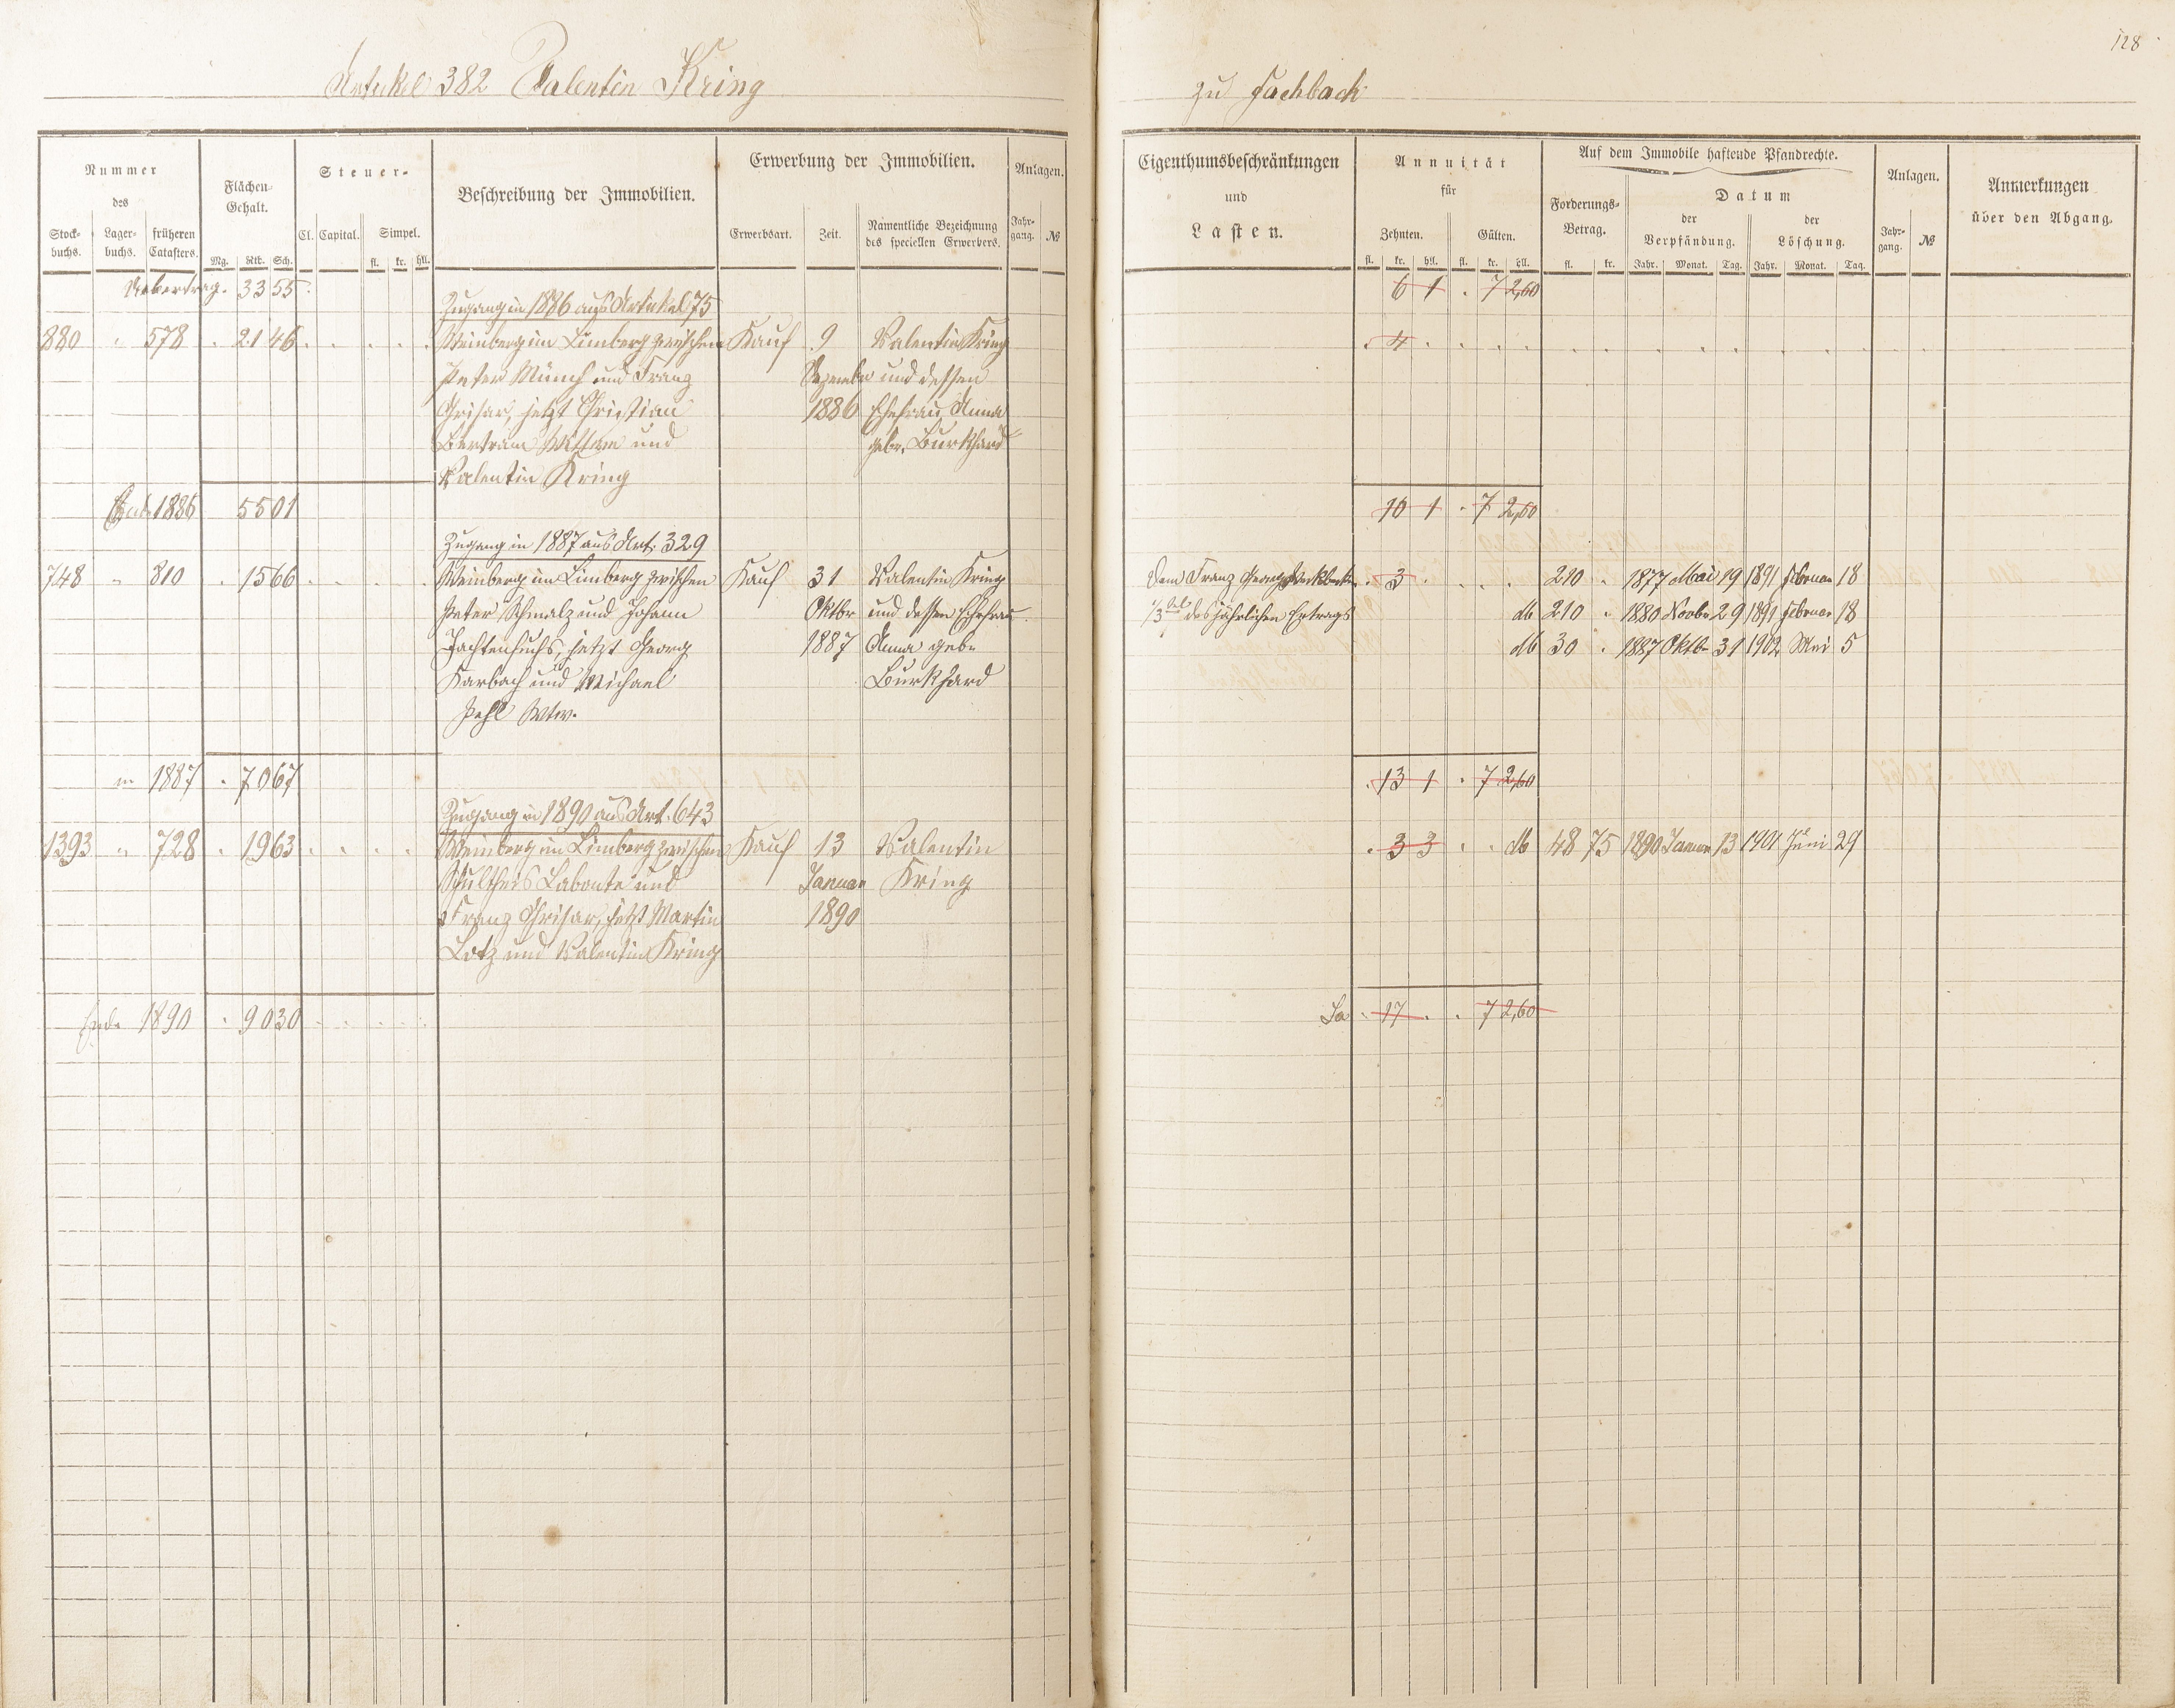 128
Artickel 382 Valentin Kring zu Fachbach
Nummer
des
Stock-buchs. Lager-buchs. früheren Catasters.
Flächen-Gehalt.
Mg. Rth. Sch.
Steuer-
Cl. Capital. Simpel.
fl. kr. hll.
Beschreibung der Immobilien.
Erwerbung der Immobilien.
Erwerbsart. Zeit. Namentliche Bezeichnung des speciellen Erwerbers.
Anlagen.
Jahr-gang. №
Eigenthumsbeschränkungen
und
Lasten.
Annuität
für
Zehnten. Gülten.
fl. kr. hll. fl. kr. hll.
Auf dem Immobile haftende Pfandrechte.
Forderungs-Betrag.
fl. kr.
Datum
der Verpfändung. der Löschung.
Jahr. Monat. Tag. Jahr. Monat. Tag.
Anlagen.
Jahr-gang. №
Anmerkungen
über den Abgang.
Uebertrag. 33 55 6 1 . 7 2,60
Zugang in 1886 aus Artickel 75
880 " 578 . 21 46 Weinberg im Limberg zwischen Kauf 9 Valentin Kring . 4
Peter Münch und Franz Dezember und dessen
Grisar, jetzt Christian 1886 Ehefrau Anna
Bertram Wittwe und geb. Burkhard
Valentin Kring
Ende 1886 55 01 10 1 . 7 2,60
Zugang in 1887 aus Art. 329
748 " 810 . 15 66 Weinberg im Limberg zwischen Kauf 31 Valentin Kring Dem Franz Georg . 3 210 " 1877 Mai 19 1891 Februar 18
Peter Schmalz und Johann Oktbr und dessen Ehefrau 1/3tel des jährlichen Ertrags do 210 " 1880 Novbr 29 1891 Februar 18
jetzt Georg 1887 Anna geb. do 30 " 1887 Oktbr 31 1902 Mai 5
Karbach und Michael Burkhard
Pehl Wtw.
in 1887 . 70 67 . 13 1 . 7 2,60
Zugang in 1890 aus Art. 643
1393 " 728 . 19 63 Weinberg im Limberg zwischen Kauf 13 Valentin . 3 3 do 48 75 1890 Januar 13 1901 Juni 29
Schultheis Labonte und Januar Kring
Franz Grisar, jetzt Martin 1890
Lotz und Valentin Kring
Ende 1890 . 90 30 Sa . 17 . . 7 2,60